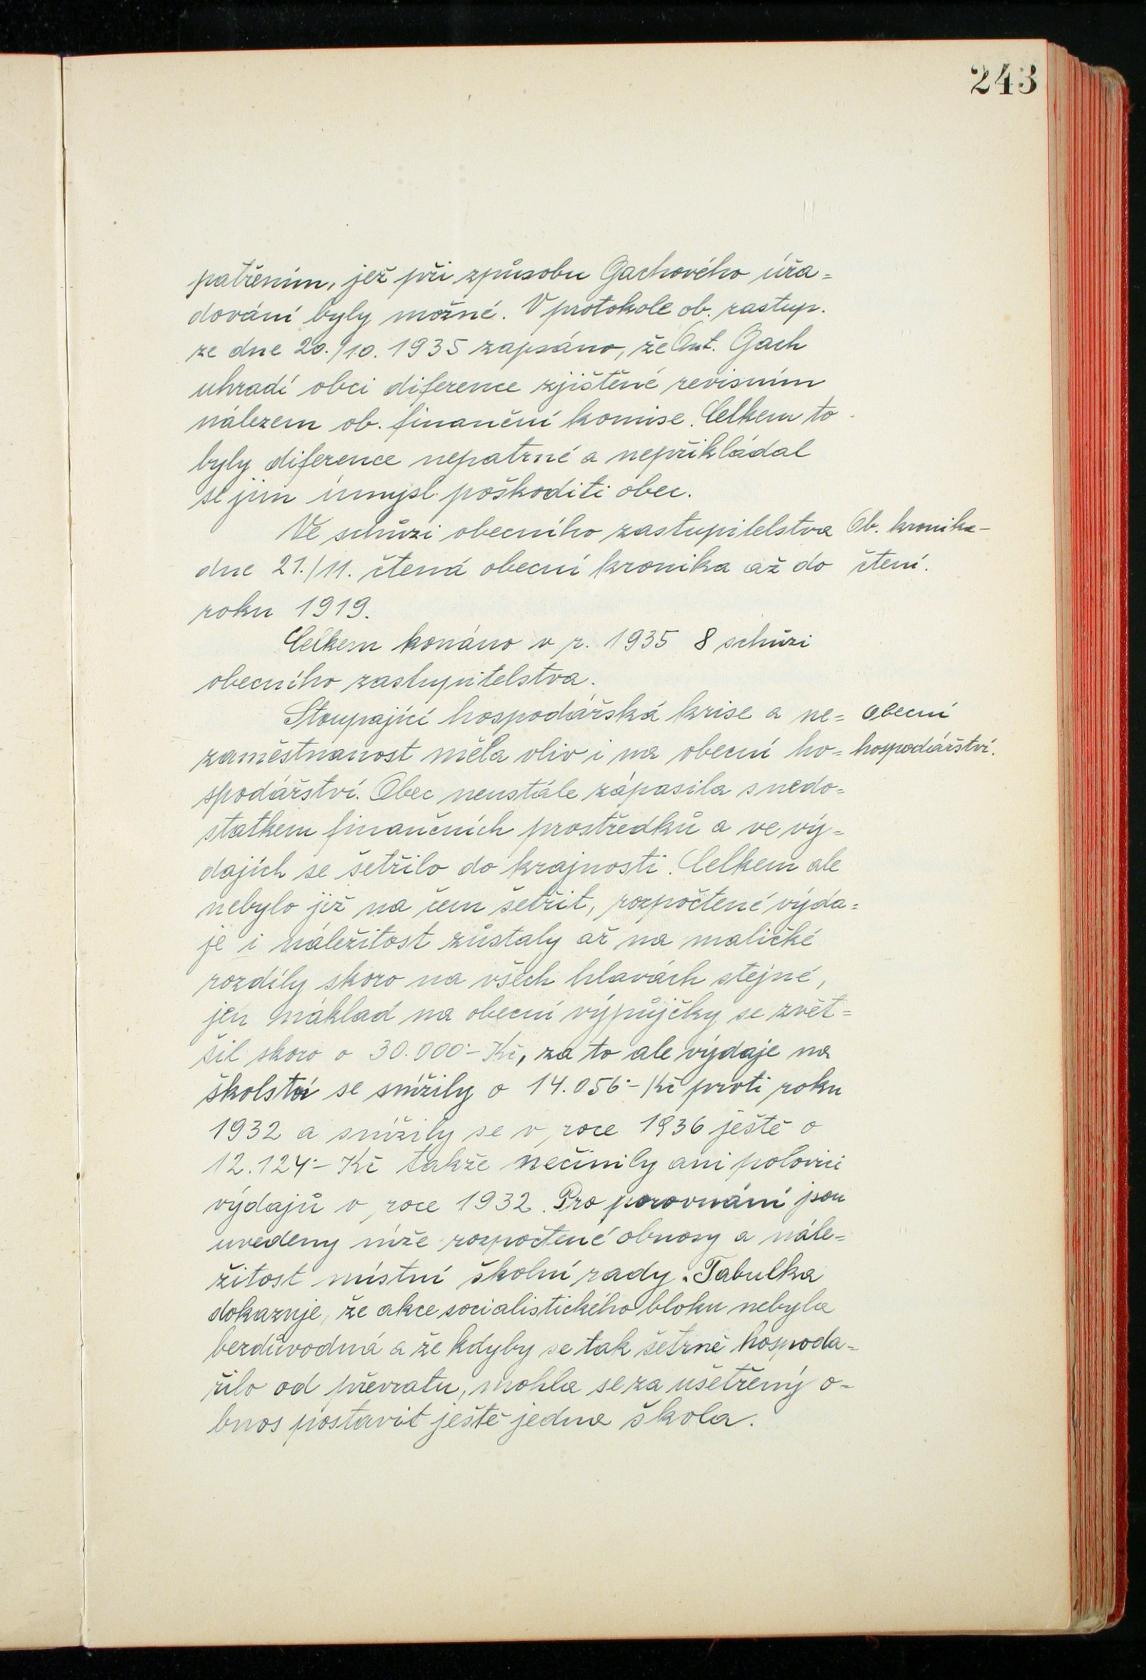 243
patřením, jež při způsobu Gachového úřa=
dování byly možné. V protokole ob. zastup.
ze dne 20./10. 1935 zapsáno, že Ant. Gach
uhradí obci diference zjištěné revisním
nálezem ob. finanční komise. Celkem to
byly diference nepatrné a nepřikládal
se jim úmysl poškoditi obec.
Ve schůzi obecního zastupitelstva
Ob. kronika-
dne 21./11. čtená obecní kronika až do
čtení.
roku 1919.
Celkem konáno v r. 1935 8 schůzi
obecního zastupitelstva.
Stoupající hospodářská krise a ne=
Obecní
zaměstnanost měla vliv i na obecní ho=
hospodářství.
spodářství. Obec neustále zápasila s nedo=
statkem finančních prostředků a ve vý=
dajích se šetřilo do krajnosti. Celkem ale
nebylo již na čem šetřit, rozpočtené výda=
je i náležitost zůstaly až na maličké
rozdíly skoro na všech hlavách stejné,
jen náklad na obecní výpůjčky se zvět=
šil skoro o 30.000·- Kč, za to ale výdaje na
školství se snížily o 14.056·- Kč proti roku
1932 a snížily se v roce 1936 ještě o
12.124·- Kč takže nečinily ani polovici
výdajů v roce 1932. Pro porovnání jsou
uvedeny níže rozpočtené obnosy a nále=
žitost místní školní rady. Tabulka
dokazuje, že akce socialistického bloku nebyla
bezdůvodná a že kdyby se tak šetrně hospoda=
řilo od převratu, mohla se za ušetřený o-
bnos postavit ještě jedna škola.